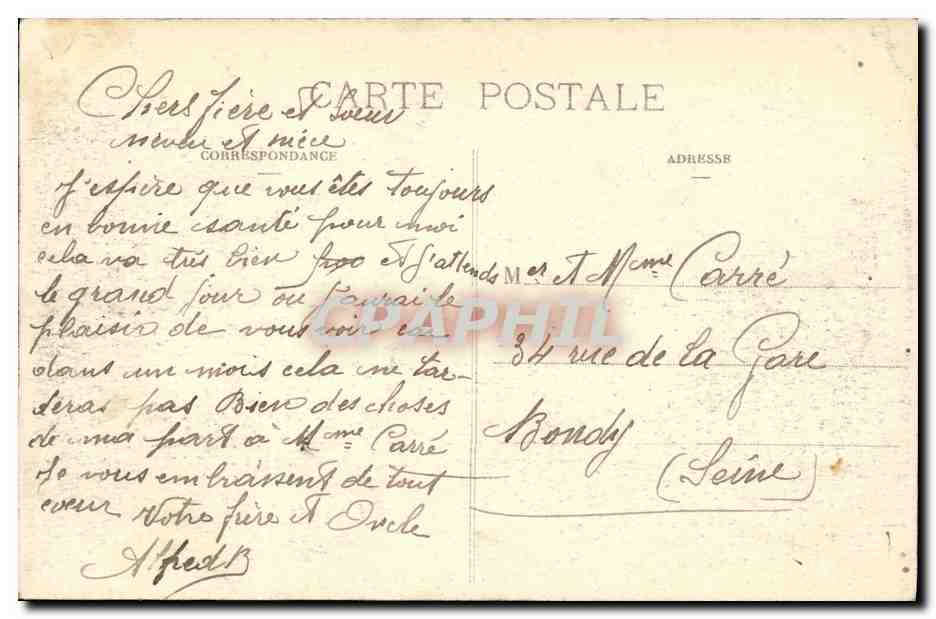 CARTE POSTALE
Chers frère et Sœur
neveu et nièce
CORRESPONDANCE
J'espère que vous êtes toujours
en bonne santé pour moi
cela va très bien et j'attends
le grand jour ou j'aurai le
plaisir de vous voir car
dans un mois cela ne tar-
deras pas Bien des choses
de ma part à Mme Carré
Je vous embrassent de tout
cœur Votre frère et Oncle
Alfred B
ADRESSE
Mer et Mme Carré
34 rue de la Gare
Bondy
(Seine)
CPAPHIL